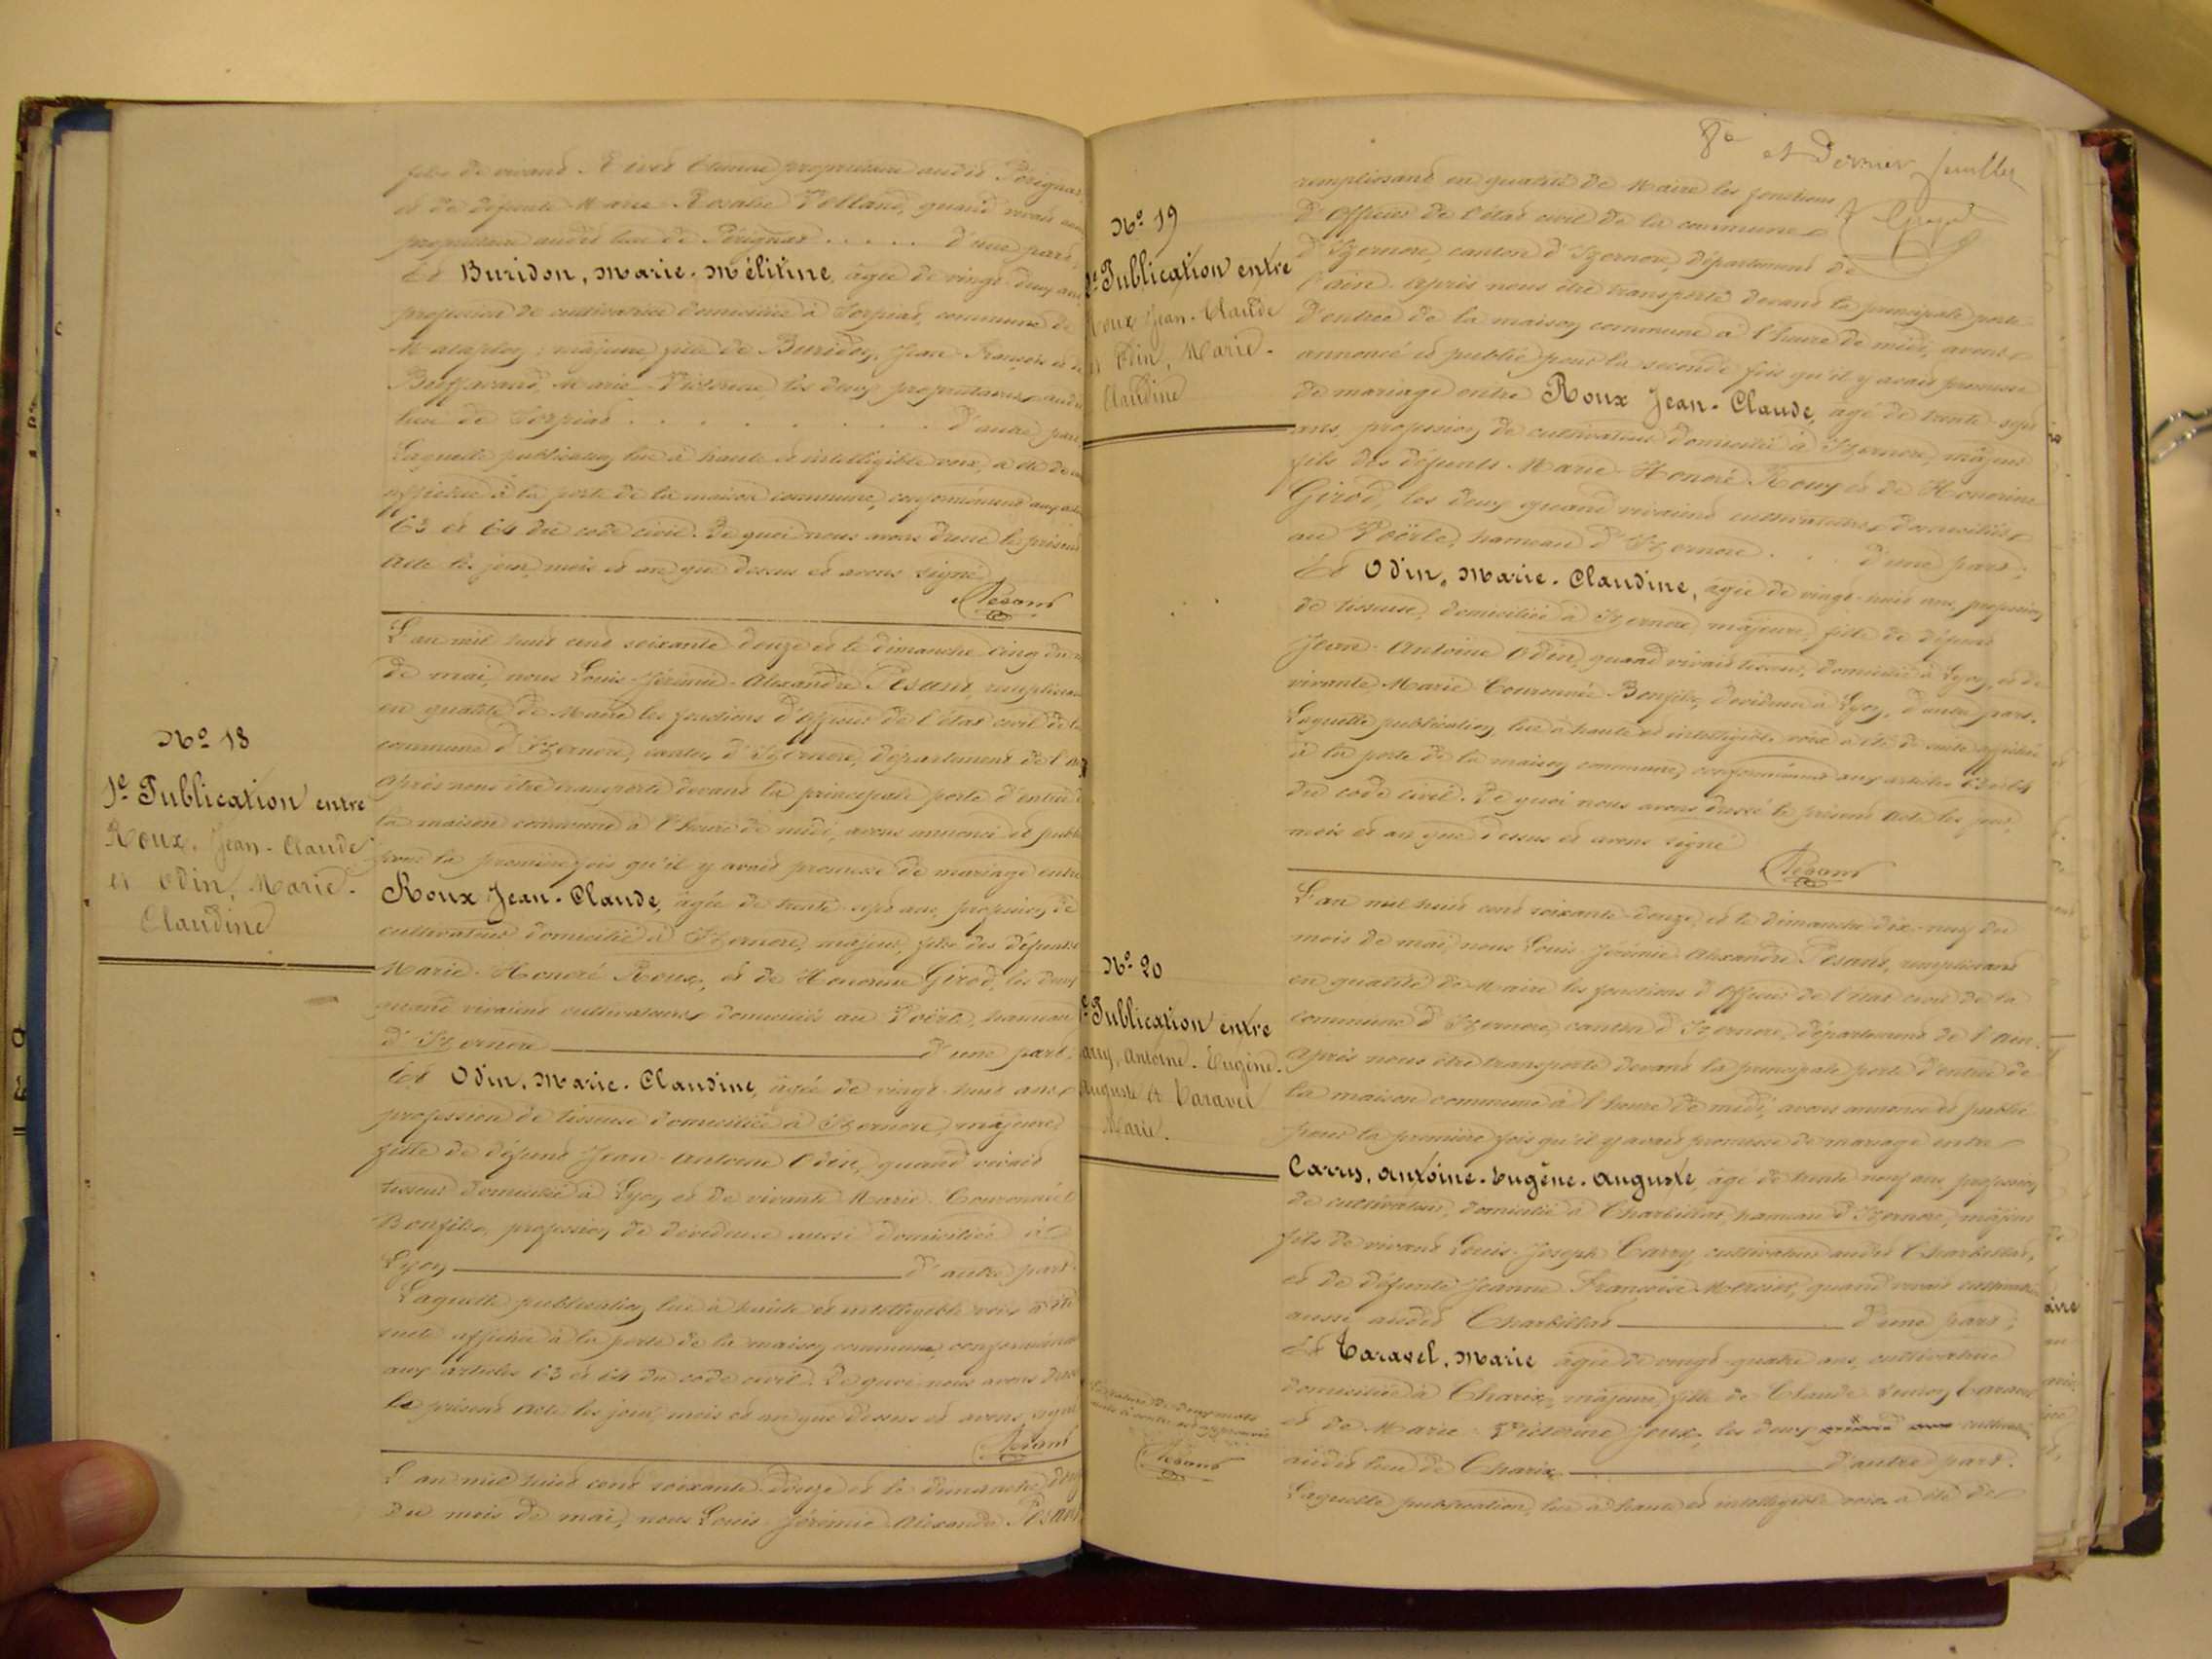 fils de vivant Étienne propriétaire audit Pérignat,
et de défunte Marie Rosalie Volland, quand vivait
propriétaire audit lieu de Pérignat . . . . . d'une part,
Et Buridon, Marie-Mélitine, âgée de vingt deux ans
profession de cultivatrice domiciliée à Sorpiat, commune de
Matafelon ; majeure, fille de Buridon, Jean François et de
Marie Victorine, les deux propriétaires audit
lieu de Sorpiat . . . . . . . . . d'autre part.
Laquelle publication, lue à haute et intelligible voix, a été de
affichée à la porte de la maison commune, conformément aux
63 et 64 du code civil. De quoi nous avons dressé le présent
acte les jour, mois et an que dessus et avons signé
Pesant
Nº 18
1e Publication entre
Roux, Jean-Claude
et Odin, Marie-
Claudine
L'an mil huit cent soixante douze et le dimanche cinq du
de mai, nous Louis-Jérémie-Alexandre Pesant, remplissant
en qualité de Maire les fonctions d'Officier de l'état civil de la
commune d'Izernore, canton d'Izernore, département de l'Ain
Après nous être transporté devant la principale porte d'entrée d
la maison commune à l'heure de midi, avons annoncé et publié
pour la première fois qu'il y avait promesse de mariage entre
Roux Jean-Claude, âgé de trente-sept ans, profession de
cultivateur domicilié à Izernore, majeur, fils des défunts
Marie-Honoré Roux, et de Honorine Girod, les deux
quand vivaient cultivateurs domiciliés au Voërle, hameau
d'Izernore d'une part ;
Et Odin, Marie-Claudine, âgée de vingt-huit ans
profession de tisseuse domiciliée à Izernore, majeure,
fille de défunt Jean-Antoine Odin, quand vivait
tisseur domicilié à Lyon et de vivante Marie Couronnée
Bonfils, profession de dévideuse aussi domiciliée à
Lyon d'autre part.
Laquelle publication lue à haute et intelligible voix a été
suite affichée à la porte de la maison commune, conformément
aux articles 63 et 64 du code civil. De quoi nous avons dressé
le présent acte les jour, mois et an que dessus et avons signé
Pesant
L'an mil huit cent soixante douze et le dimanche
du mois de mai, nous Louis Jérémie Alexandre Pesant
8e et Dernier feuillet
Nº 19
2e Publication entre
Roux Jean-Claude
et Odin, Marie-
Claudine
remplissant en qualité de Maire les fonctions
d'Officier de l'état civil de la commune
d'Izernore, canton d'Izernore, département de
l'Ain. Après nous être transporté devant la principale porte
d'entrée de la maison commune à l'heure de midi, avons
annoncé et publié pour la seconde fois qu'il y avait promesse
de mariage entre Roux Jean-Claude, âgé de trente-sept
ans, profession de cultivateur domicilié à Izernore, majeur
fils des défunts Marie-Honoré Roux et de Honorine
Girod, les deux quand vivaient cultivateurs domiciliés
au Voërle, hameau d'Izernore . . d'une part ;
Et Odin, Marie-Claudine, âgée de vingt-huit ans, profession
de tisseuse, domiciliée à Izernore, majeure, fille de défunt
Jean-Antoine Odin, quand vivait tisseur, domicilié à Lyon, et de
vivante Marie Couronnée Bonfils, dévideuse à Lyon, d'autre part.
Laquelle publication, lue à haute et intelligible voix a été de suite affichée
à la porte de la maison commune, conformément aux articles 63 et 64
du code civil. De quoi nous avons dressé le présent acte les jour,
mois et an que dessus et avons signé
Pesant
Nº 20
1e Publication entre
Carry, Antoine-Eugène-
Auguste et Taravel
Marie.
L'an mil huit cent soixante-douze, et le dimanche dix-neuf du
mois de mai, nous Louis-Jérémie-Alexandre Pesant, remplissant
en qualité de Maire les fonctions d'Officier de l'état civil de la
commune d'Izernore, canton d'Izernore, département de l'Ain.
Après nous être transporté devant la principale porte d'entrée de
la maison commune à l'heure de midi, avons annoncé et publié
pour la première fois qu'il y avait promesse de mariage entre
Carry, Antoine-Eugène-Auguste, âgé de trente neuf ans, profession
de cultivateur, domicilié à Charbillat, hameau d'Izernore, majeur
fils de vivant Louis-Joseph Carry, cultivateur audit Charbillat,
et de défunte Jeanne Françoise Mercier, quand vivait cultivatrice
aussi audit Charbillat d'une part ;
Et Taravel, Marie âgée de vingt-quatre ans, cultivatrice
domiciliée à Charix, majeure, fille de Claude Taravel
et de Marie Victorine Joux, les deux
audit lieu de Charix d'autre part.
Laquelle publication, lue à haute et intelligible voix a été de
Pesant